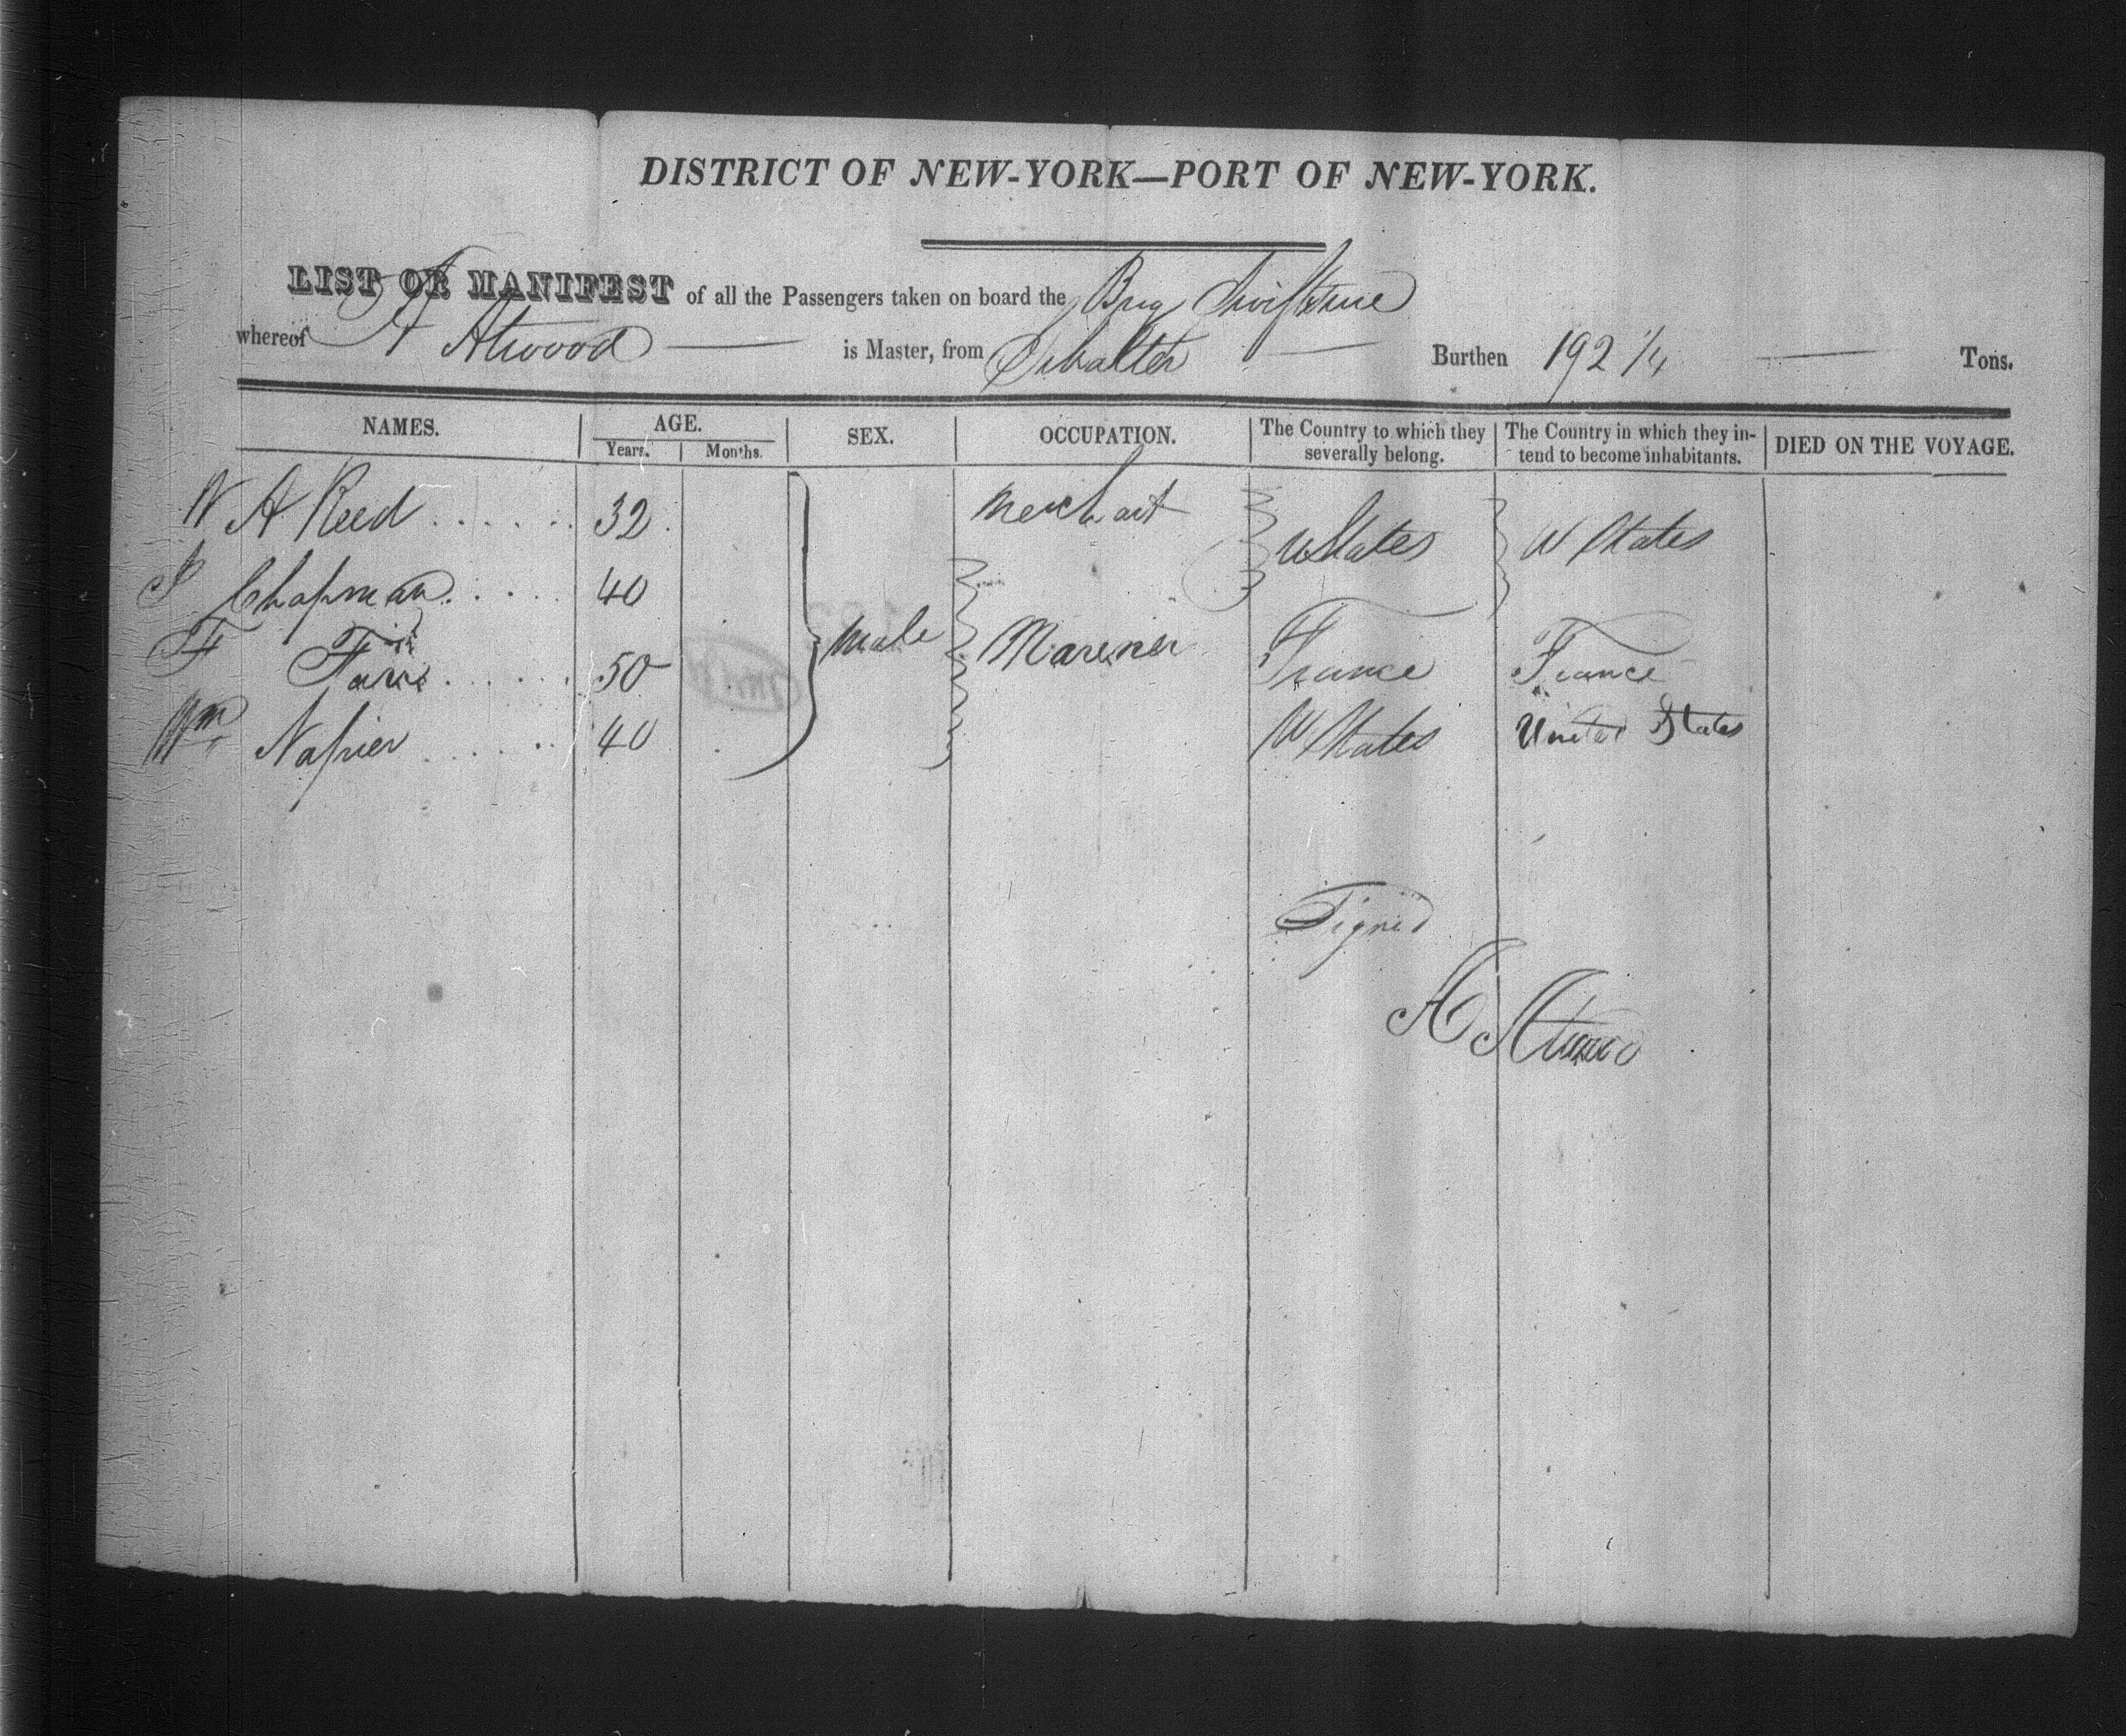 DISTRICT OF NEW-YORK—PORT OF NEW-YORK.
LIST OR MANIFEST of all the Passengers taken on board the Brig
whereof A Atwood is Master, from Gibalter Burthen 192 1/4 Tons.
NAMES. AGE. SEX. OCCUPATION. The Country to which they severally belong. The Country in which they intend to become inhabitants. DIED ON THE VOYAGE.
Years. Months.
W A Reed 32 merchant U States U States
Chapman 40
F 50 male Marener France France
Wm Napier 40 U States United States
Signed
A Atwood